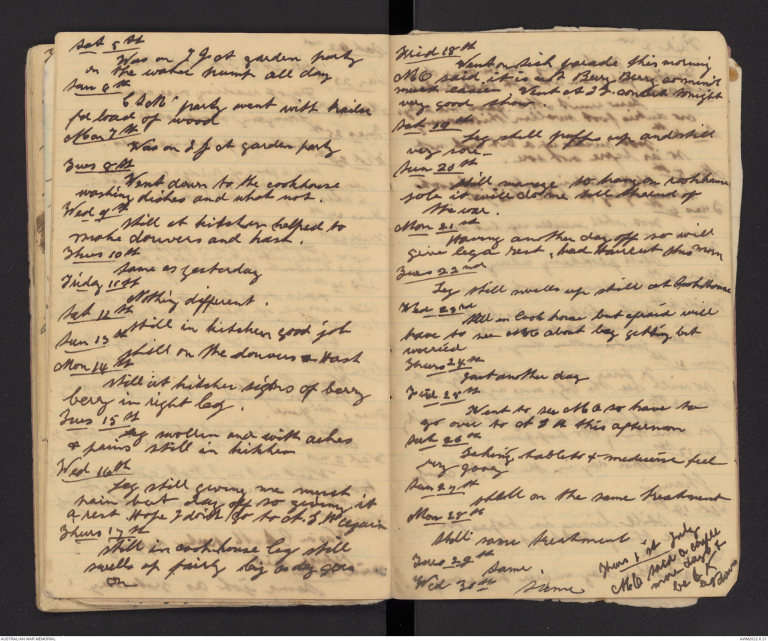 Sat 5th
Was on I J at garden party
on the water pump all day
Sun 6th
C & M' party went with trailer
for load of wood
Mon 7th
Was on I J at garden party
Tues 8th
Went down to the cookhouse
washing dishes and what not.
Wed 9th
Still at kitchen helped to
make douvers and hash.
Thurs 10th
Same as yesterday
Friday 11th
Nothing different.
Sat 12th
Still in kitchen good job
Sun 13th
Still on the douvers & Hash
Mon 14th
Still at kitchen signs of berry
berry in right leg.
Tues 15th
Leg swollen and with aches
& pains still in kitchen
Wed 16th
Leg still giving me much
pain but day off so giving it
a rest Hope I don't go to at I W again
Thurs 17th
Still in cookhouse leg still
swells up fairly big as day goes
on
Frid 18th
Went on sick parade this morning
MO said it is a bit Berry Berry so mind
much easier. Went at I J concert tonight
very good show.
Sat 19th
Leg still puffs up and still
very sore
Sun 20th
Still manage to hang on cookhouse
job it will do me till the end of
the war.
Mon 21st
Having another day off so will
give leg a rest, had Haircut this morn
Tues 22nd
Leg still swells up still at Cookhouse
Wed 23rd
Still in Cook house but afraid will
have to see MO about leg getting bit
worried
Thurs 24th
Just another day
Frid 25th
Went to see MO so have to
go over to at I H this afternoon
Sat 26th
Taking tablets & medicine feel
very goosy
Sun 27th
Still on the same treatment
Mon 28th
Still same treatment
Tues 29th
Same
Wed 30th
Same
Thurs 1st July
MO said a couple
more days &
be O K
AUSTRALIAN WAR MEMORIAL